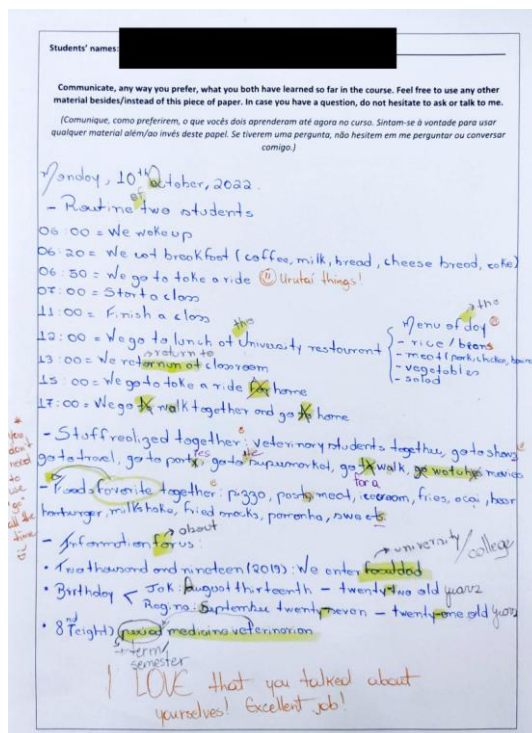 Students' names:
Communicate, any way you prefer, what you both have learned so far in the course. Feel free to use any other
material besides/instead of this piece of paper. In case you have a question, do not hesitate to ask or talk to me.
(Comunique, como preferirem, o que vocês dois aprenderam até agora no curso. Sintam-se à vontade para usar
qualquer material além/ao invés deste papel. Se tiverem uma pergunta, não hesitem em me perguntar ou conversar
comigo.)
Monday, 10th October, 2022.
of
- Routine two students
06:00 = We wake up
06:20 = We eat breakfast (coffee, milk, bread, cheese bread, cake)
06:50 = We go to take a ride Urutaí things!
07:00 = Start a class
11:00 = Finish a class
the
12:00 = We go to lunch of University restaurant
the
Menu of day
- rice / beans
- meat (pork, chicken,
- vegetables
- salad
return to
13:00 = We classroom
15:00 = We go to take a ride for home
17:00 = We go to walk together and go to home
- Stuff realized together: veterinary students together, go to
go to travel, go to party, go to supermarket, go to walk, go watch movies
ies
the
for a
* You don't need to use "go" all the time
- Foods favorite together: pizza, meat, icecream, fries, açai, beer
hamburger, milkshake, fried snacks, pamonha, sweets
- Information for us:
about
• Two thousand and nineteen (2019): We enter faculdad
university/
college
• Birthday
Jak: August thirteenth - twenty-two old years
Regina: September twenty-seven - twenty-one old years
• 8nd (eight) period medicina veterinarian
term/
semester
I LOVE that you talked about
yourselves! Excellent job!